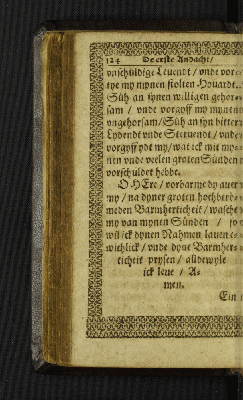 124 De erste Andacht/
vnschüldige Leuendt / vnde vor=
tye my mynen stolten Houardt.
Süh an synen willigen gehor=
sam / vnde vorgyff my mynen
vngehorsam/ Süh an syn bitter
Lydendt vnde Steruendt / vnde
vorgyff ydt my/ wat ick mit my=
nen vnde velen groten Sünden
vorschuldet hebbe.
O HEre / vorbarme dy auer
my / na dyner groten hochberö=
meden Barmherticheit / wasche
my van mynen Sünden / so
wil ick dynen Nahmen lauen e=
wichlick / vnde dyne Barmher=
ticheit prysen / alldewyle
ick leue / A=
men.
Ein